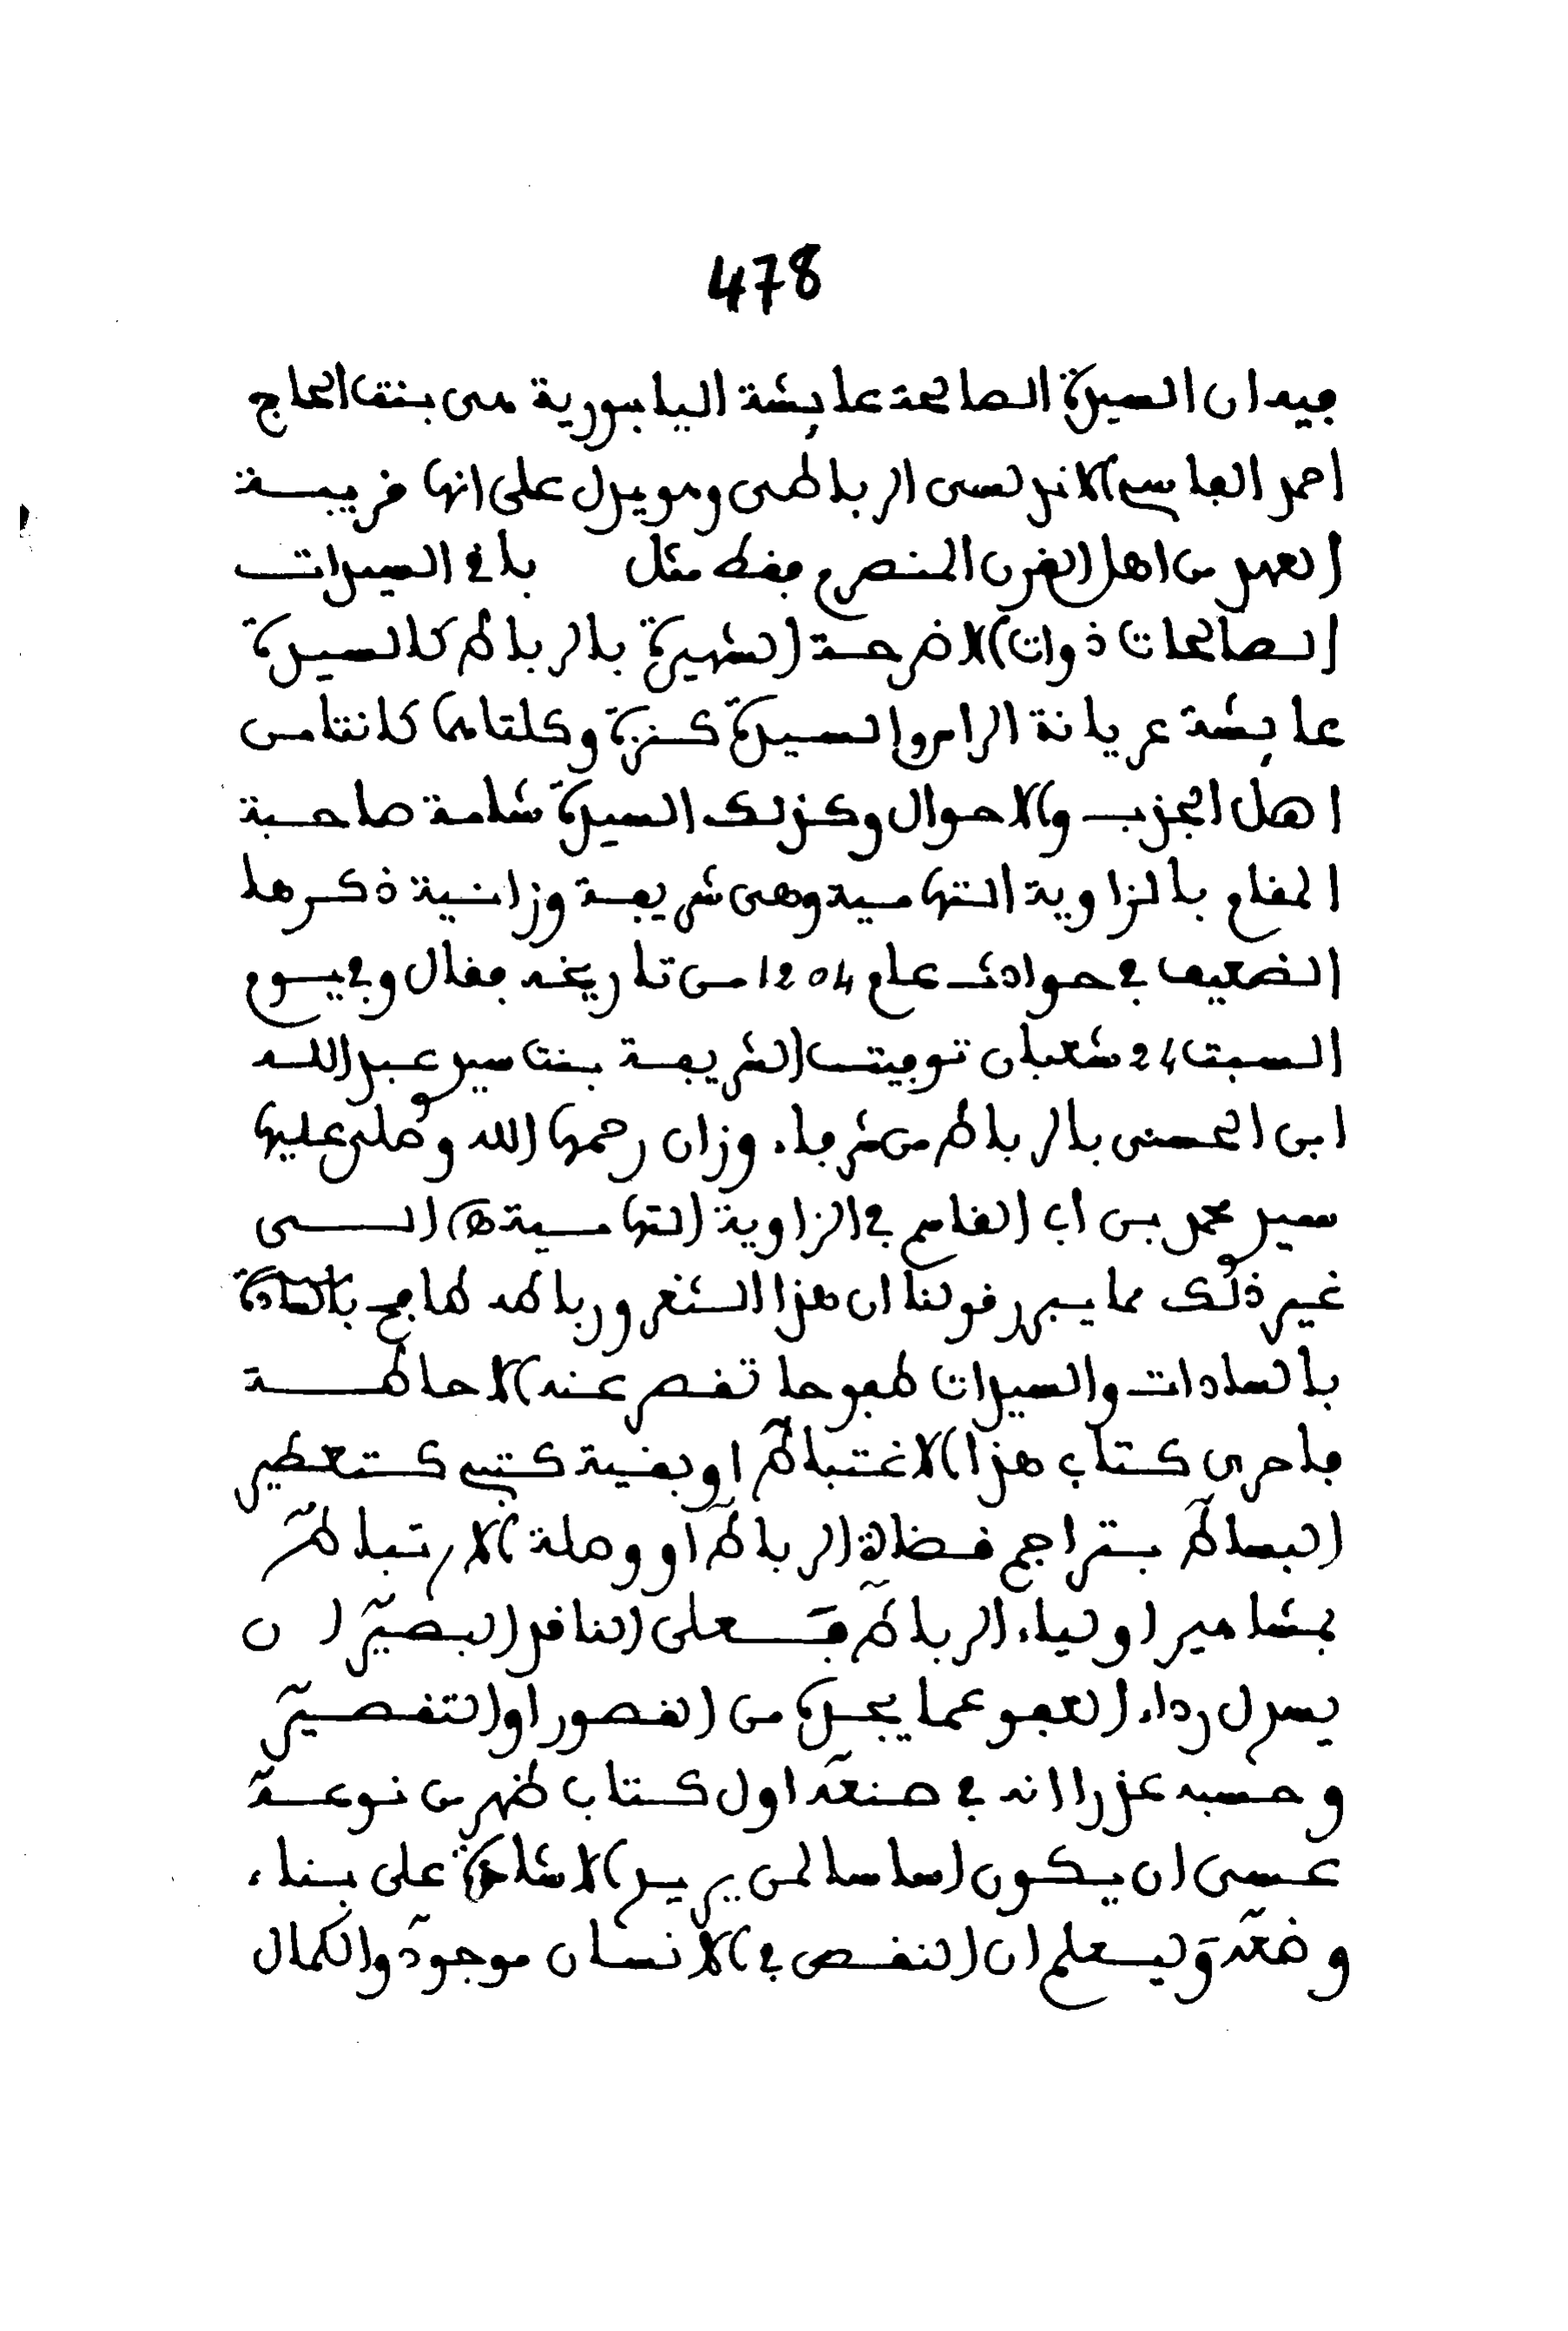 478
فيه ان السيدة الصالحة عايشة اليابورية هى بنت الحاج
احمد الفاسى الاندلسى الرباطى وهو يدل على انها قريبة
العهد من اهل القرن المنصرم فقط مثل باقى السيدات
الصالحات ذوات الاضرحة الشهيرة بالرباط كالسيدة
عايشة عريانة الراس والسيدة كنزة وكلتاهما كانتا من
اهل الجذب والاحوال وكذلك السيدة شامة صاحبة
المقام بالزاوية التهامية وهى شريفة وزانية ذكرها
الضعيف في حوادث عام 1204 من تاريخه فقال وفي يوم
السبت 24 شعبان توفيت الشريفة بنت سيدي عبد الله
ابن الحسنى بالرباط من شرفاء وزان رحمها الله وصلى عليها
سيدي محمد بن اب القاسم في الزاوية التهامية ه الى
غير ذلك مما يبرر قولنا ان هذا الثغر ورباطه طافح
بالسادات والسيدات طفوحا تقصر عنه الاحاطة
فاحرى كتاب هذا الاغتباط او بقية كتبى كتعطير
البساط بتراجم قضاة الرباط او وصلة الارتباط
بمشاهير اولياء الرباط فعلى الناقد البصير ان
يسدل رداء العفو عما يجده من القصور او التقصير
وحسبه عذرا انه في صنعه اول كتاب ظهر من نوعه
عسى ان يكون اساسا لمن يريد الاشادة على بناء
وضعه وليعلم ان النقص في الانسان موجود والكمال